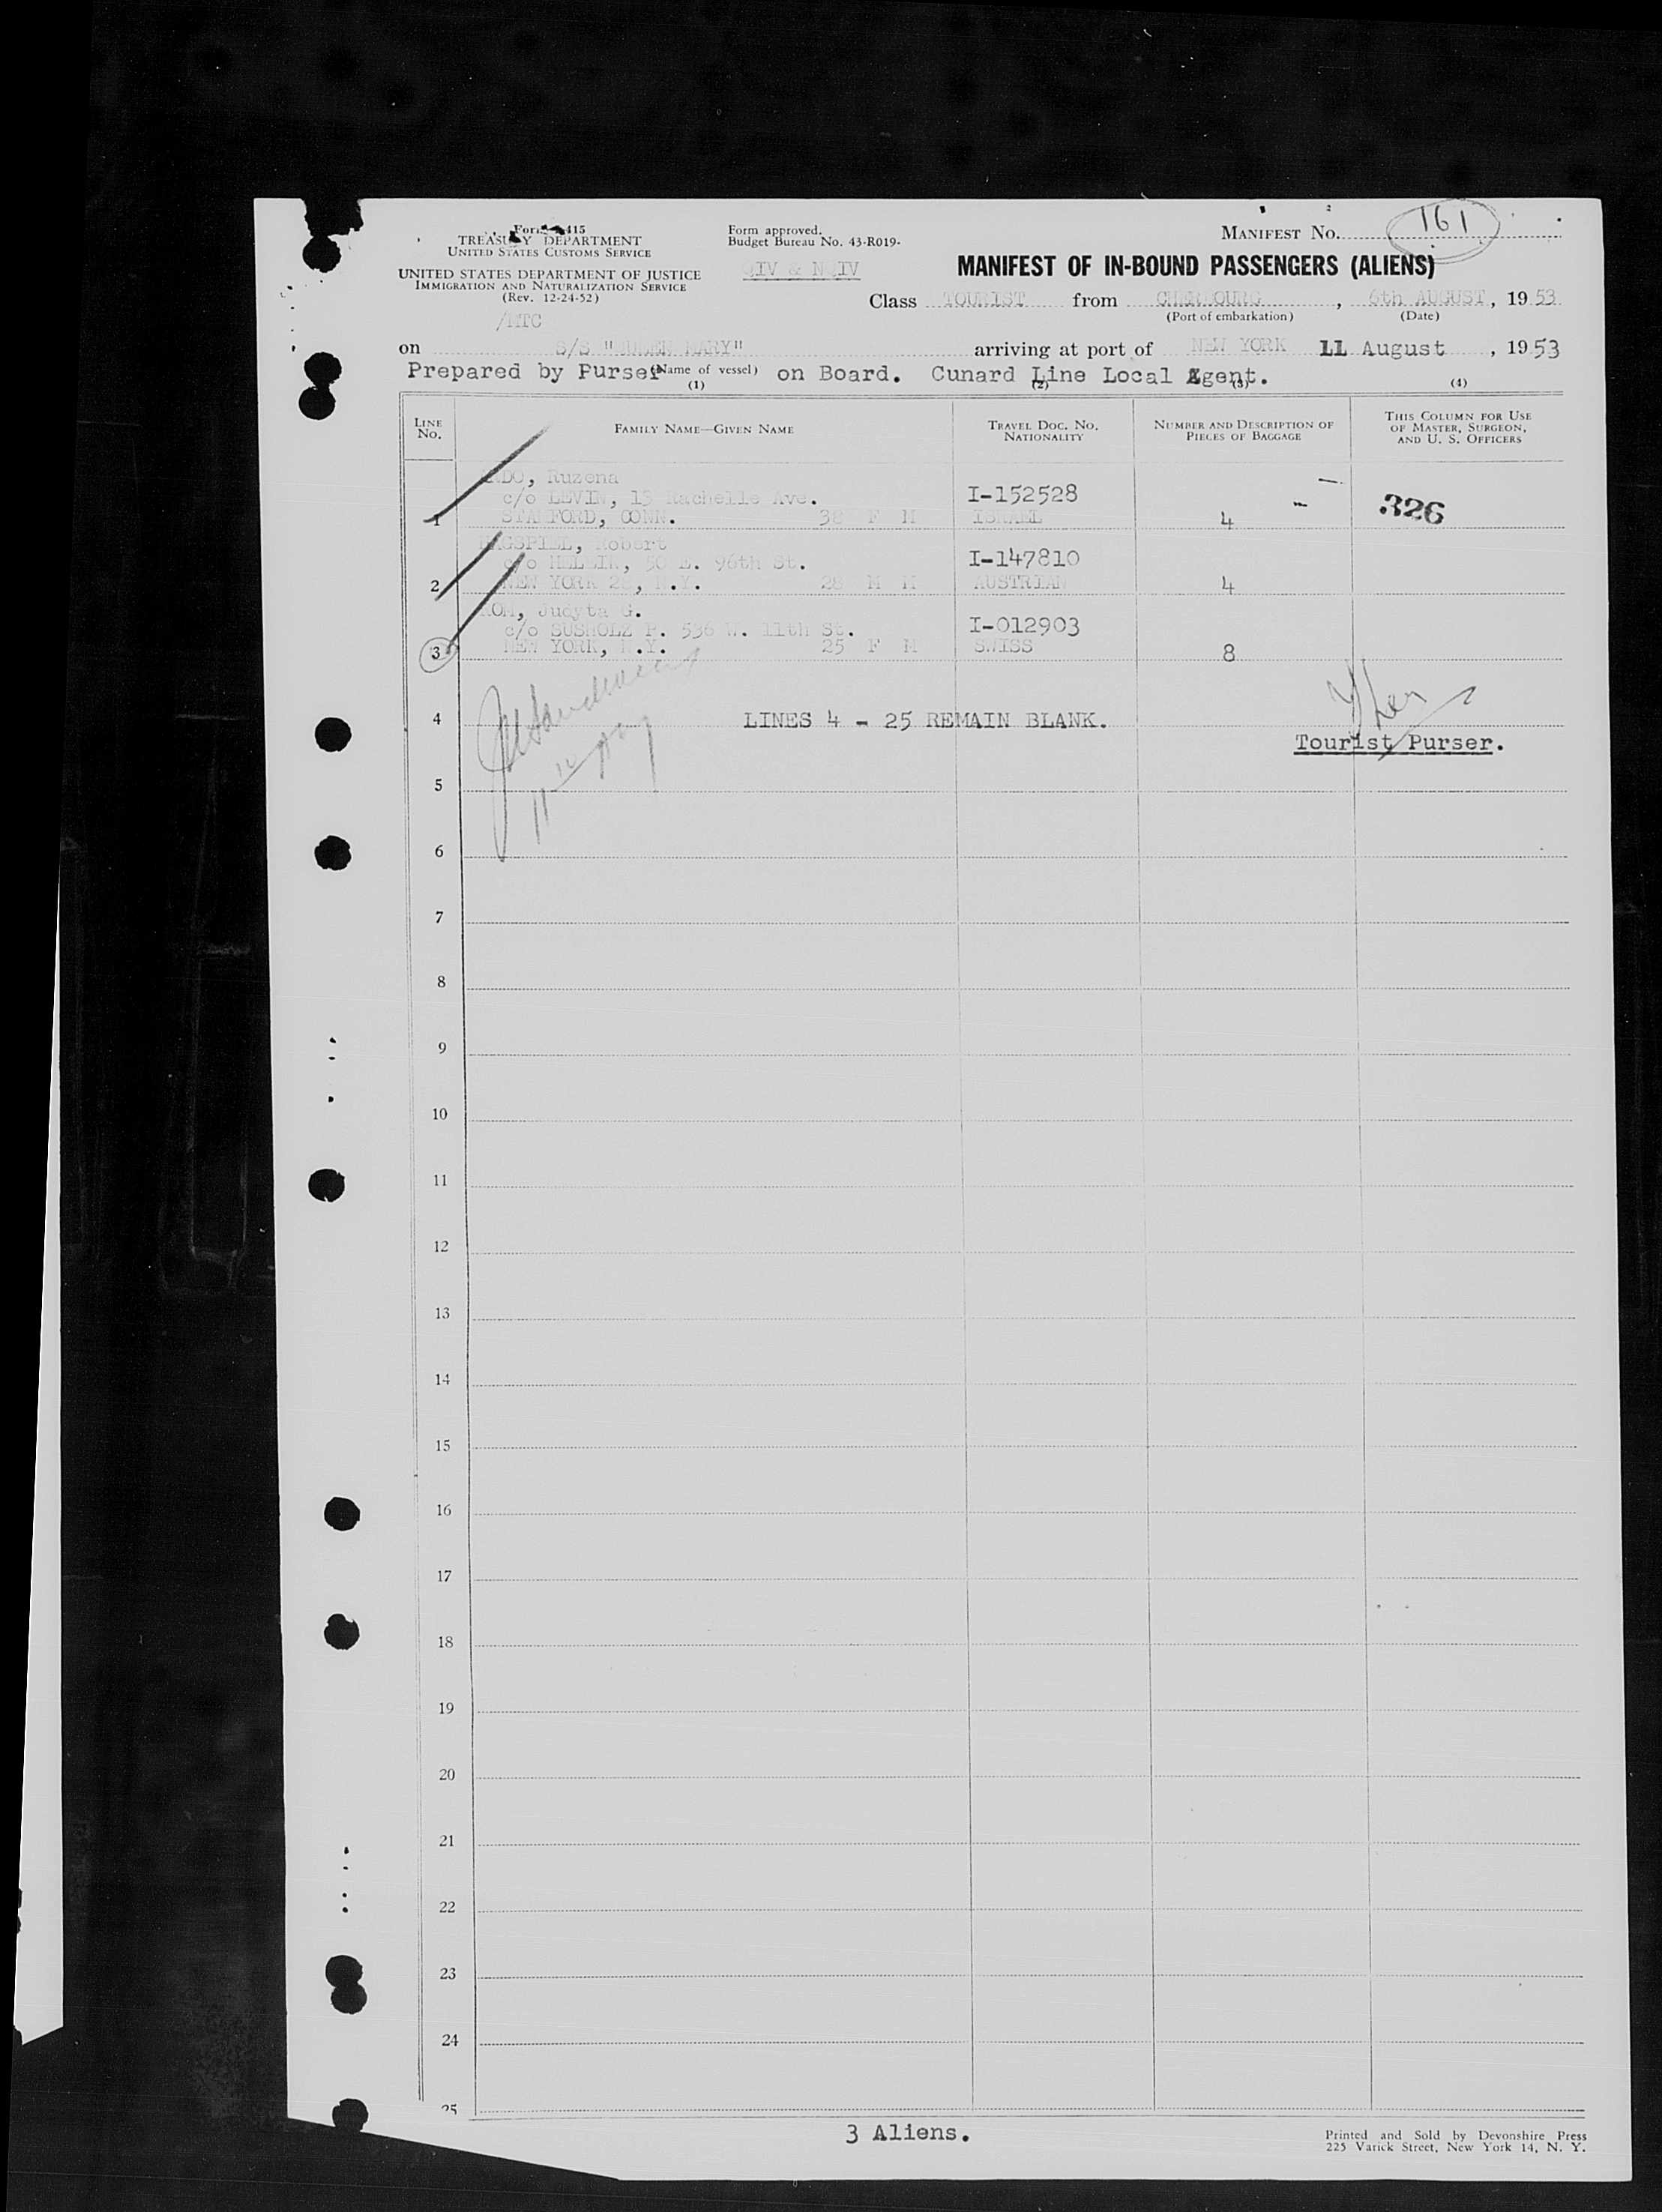 Form I-415
TREASURY DEPARTMENT
UNITED STATES CUSTOMS SERVICE
UNITED STATES DEPARTMENT OF JUSTICE
IMMIGRATION AND NATURALIZATION SERVICE
(Rev. 12-24-52)
/MTC
Form approved.
Budget Bureau No. 43-R019-
QIV & NQIV
MANIFEST NO. 161
MANIFEST OF IN-BOUND PASSENGERS (ALIENS)
Class TOURIST from CHERBOURG, 6th AUGUST, 1953
(Port of embarkation) (Date)
on S/S "QUEEN MARY" arriving at port of NEW YORK 11 August, 1953
Prepared by Purser (Name of vessel) on Board. Cunard Line Local Agent.
(1) (2) (3) (4)
LINE NO.
FAMILY NAME—GIVEN NAME
TRAVEL DOC. NO. NATIONALITY
NUMBER AND DESCRIPTION OF PIECES OF BAGGAGE
THIS COLUMN FOR USE OF MASTER, SURGEON, AND U. S. OFFICERS
Ruzena
c/o LEVIN, 15 Rachelle Ave. I-152528
1 STAMFORD, CONN. 38 F ISRAEL 4 326
Robert
c/o 50 E. 96th St. I-147810
2 NEW YORK 28, N.Y. 28 M AUSTRIAN 4
Judyta G.
c/o SUSHOLZ P. 536 W. 11th St. I-012903
3 NEW YORK, N.Y. 25 F M SWISS 8
4 LINES 4 - 25 REMAIN BLANK.
Tourist Purser.
5
6
7
8
9
10
11
12
13
14
15
16
17
18
19
20
21
22
23
24
25
3 Aliens.
Printed and Sold by Devonshire Press
225 Varick Street, New York 14, N. Y.